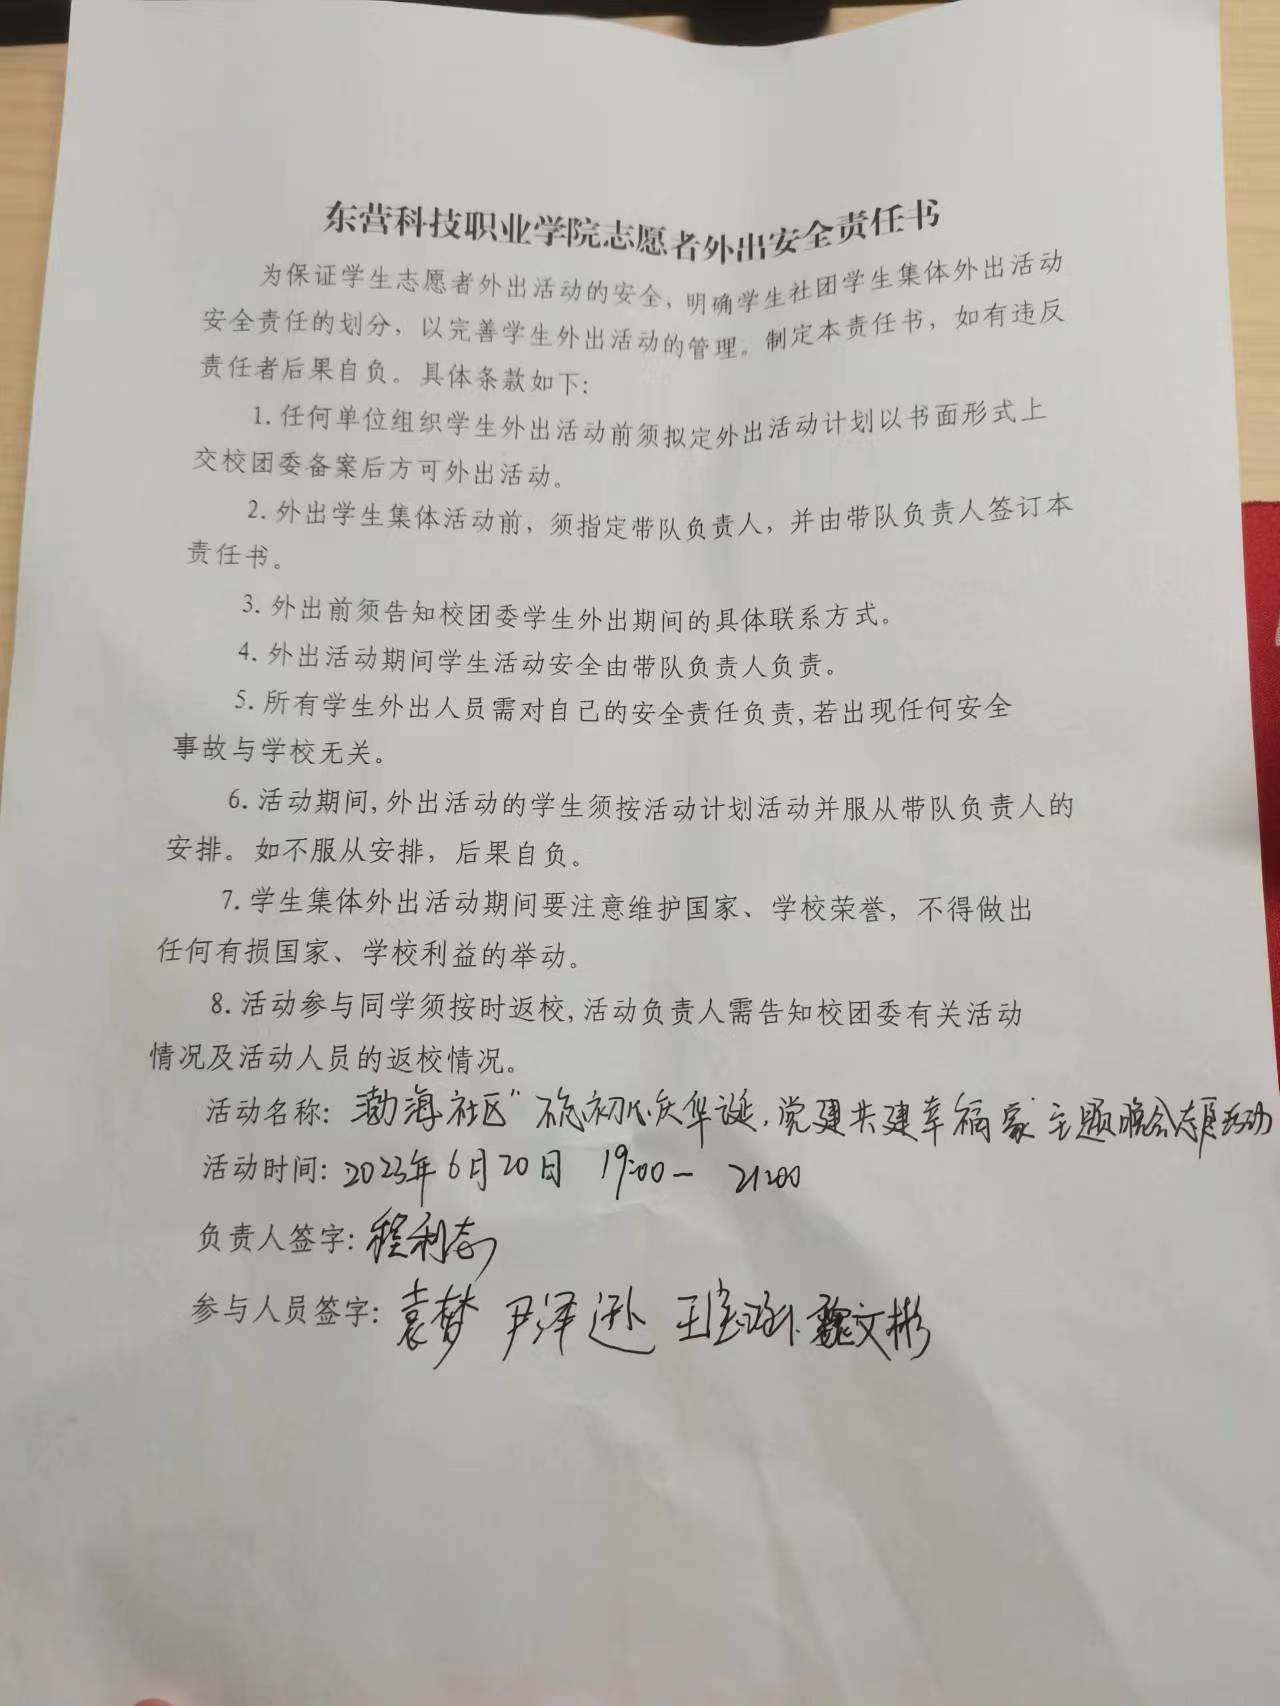 东营科技职业学院志愿者外出安全责任书
为保证学生志愿者外出活动的安全，明确学生社团学生集体外出活动
安全责任的划分，以完善学生外出活动的管理。制定本责任书，如有违反
责任者后果自负。具体条款如下：
1.任何单位组织学生外出活动前须拟定外出活动计划以书面形式上
交校团委备案后方可外出活动。
2.外出学生集体活动前，须指定带队负责人，并由带队负责人签订本
责任书。
3.外出前须告知校团委学生外出期间的具体联系方式。
4.外出活动期间学生活动安全由带队负责人负责。
5.所有学生外出人员需对自己的安全责任负责,若出现任何安全
事故与学校无关。
6.活动期间,外出活动的学生须按活动计划活动并服从带队负责人的
安排。如不服从安排，后果自负。
7.学生集体外出活动期间要注意维护国家、学校荣誉，不得做出
任何有损国家、学校利益的举动。
8.活动参与同学须按时返校,活动负责人需告知校团委有关活动
情况及活动人员的返校情况。
活动名称：渤海社区"不忘初心庆华诞，党建共建幸福家"主题晚会志愿活动
活动时间：2023年6月20日 19:00— 21:00
负责人签字：程利志
参与人员签字：袁梦 尹泽逊 魏文彬